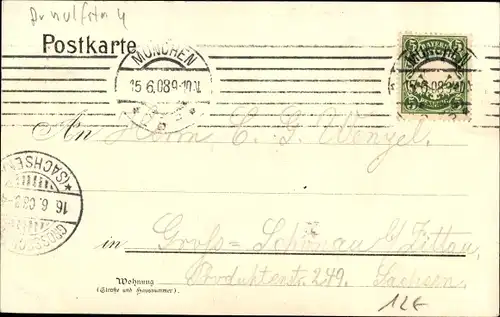 Postkarte
MÜNCHEN
15.6.08.9-10
BAYERN
5 5
MÜNCHEN
15.6.08.9-10
An Herrn E. G. Wenzel.
(SACHSEN)
16.6.08
GROSSSCH
in Groß-Schönau b/ Zittau,
Wohnung
(Straße und Hausnummer).
249. Sachsen.
12€